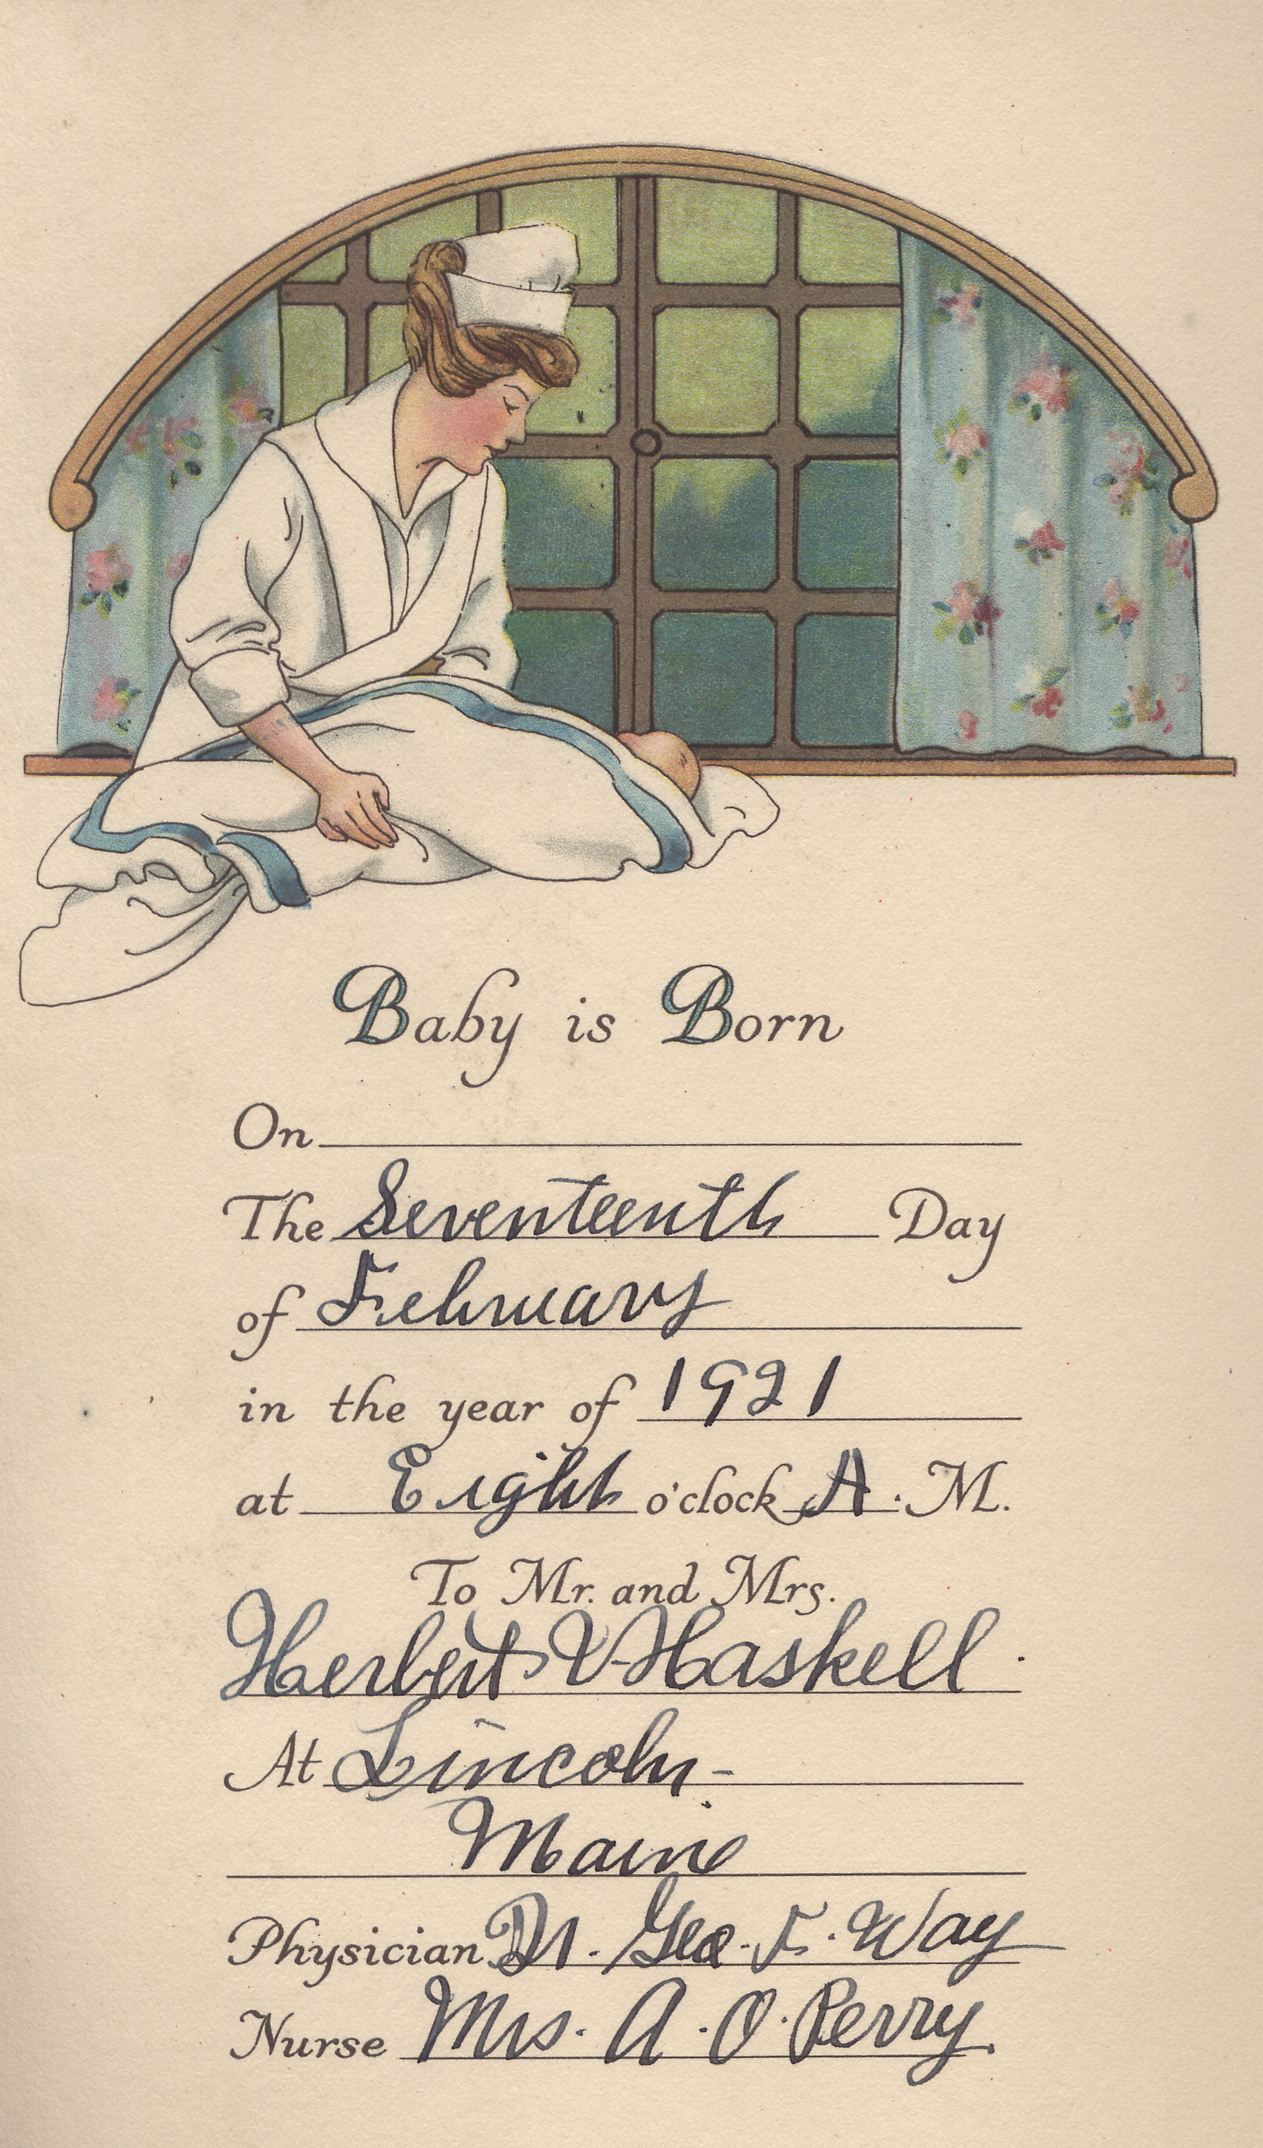 Baby is Born
On
The Seventeenth Day
of February
in the year of 1921
at Eight o'clock A. M.
To Mr. and Mrs.
Herbert V Haskell.
At Lincoln -
Maine
Physician Dr. Geo. F. Way
Nurse Mrs. A. O. Perry.